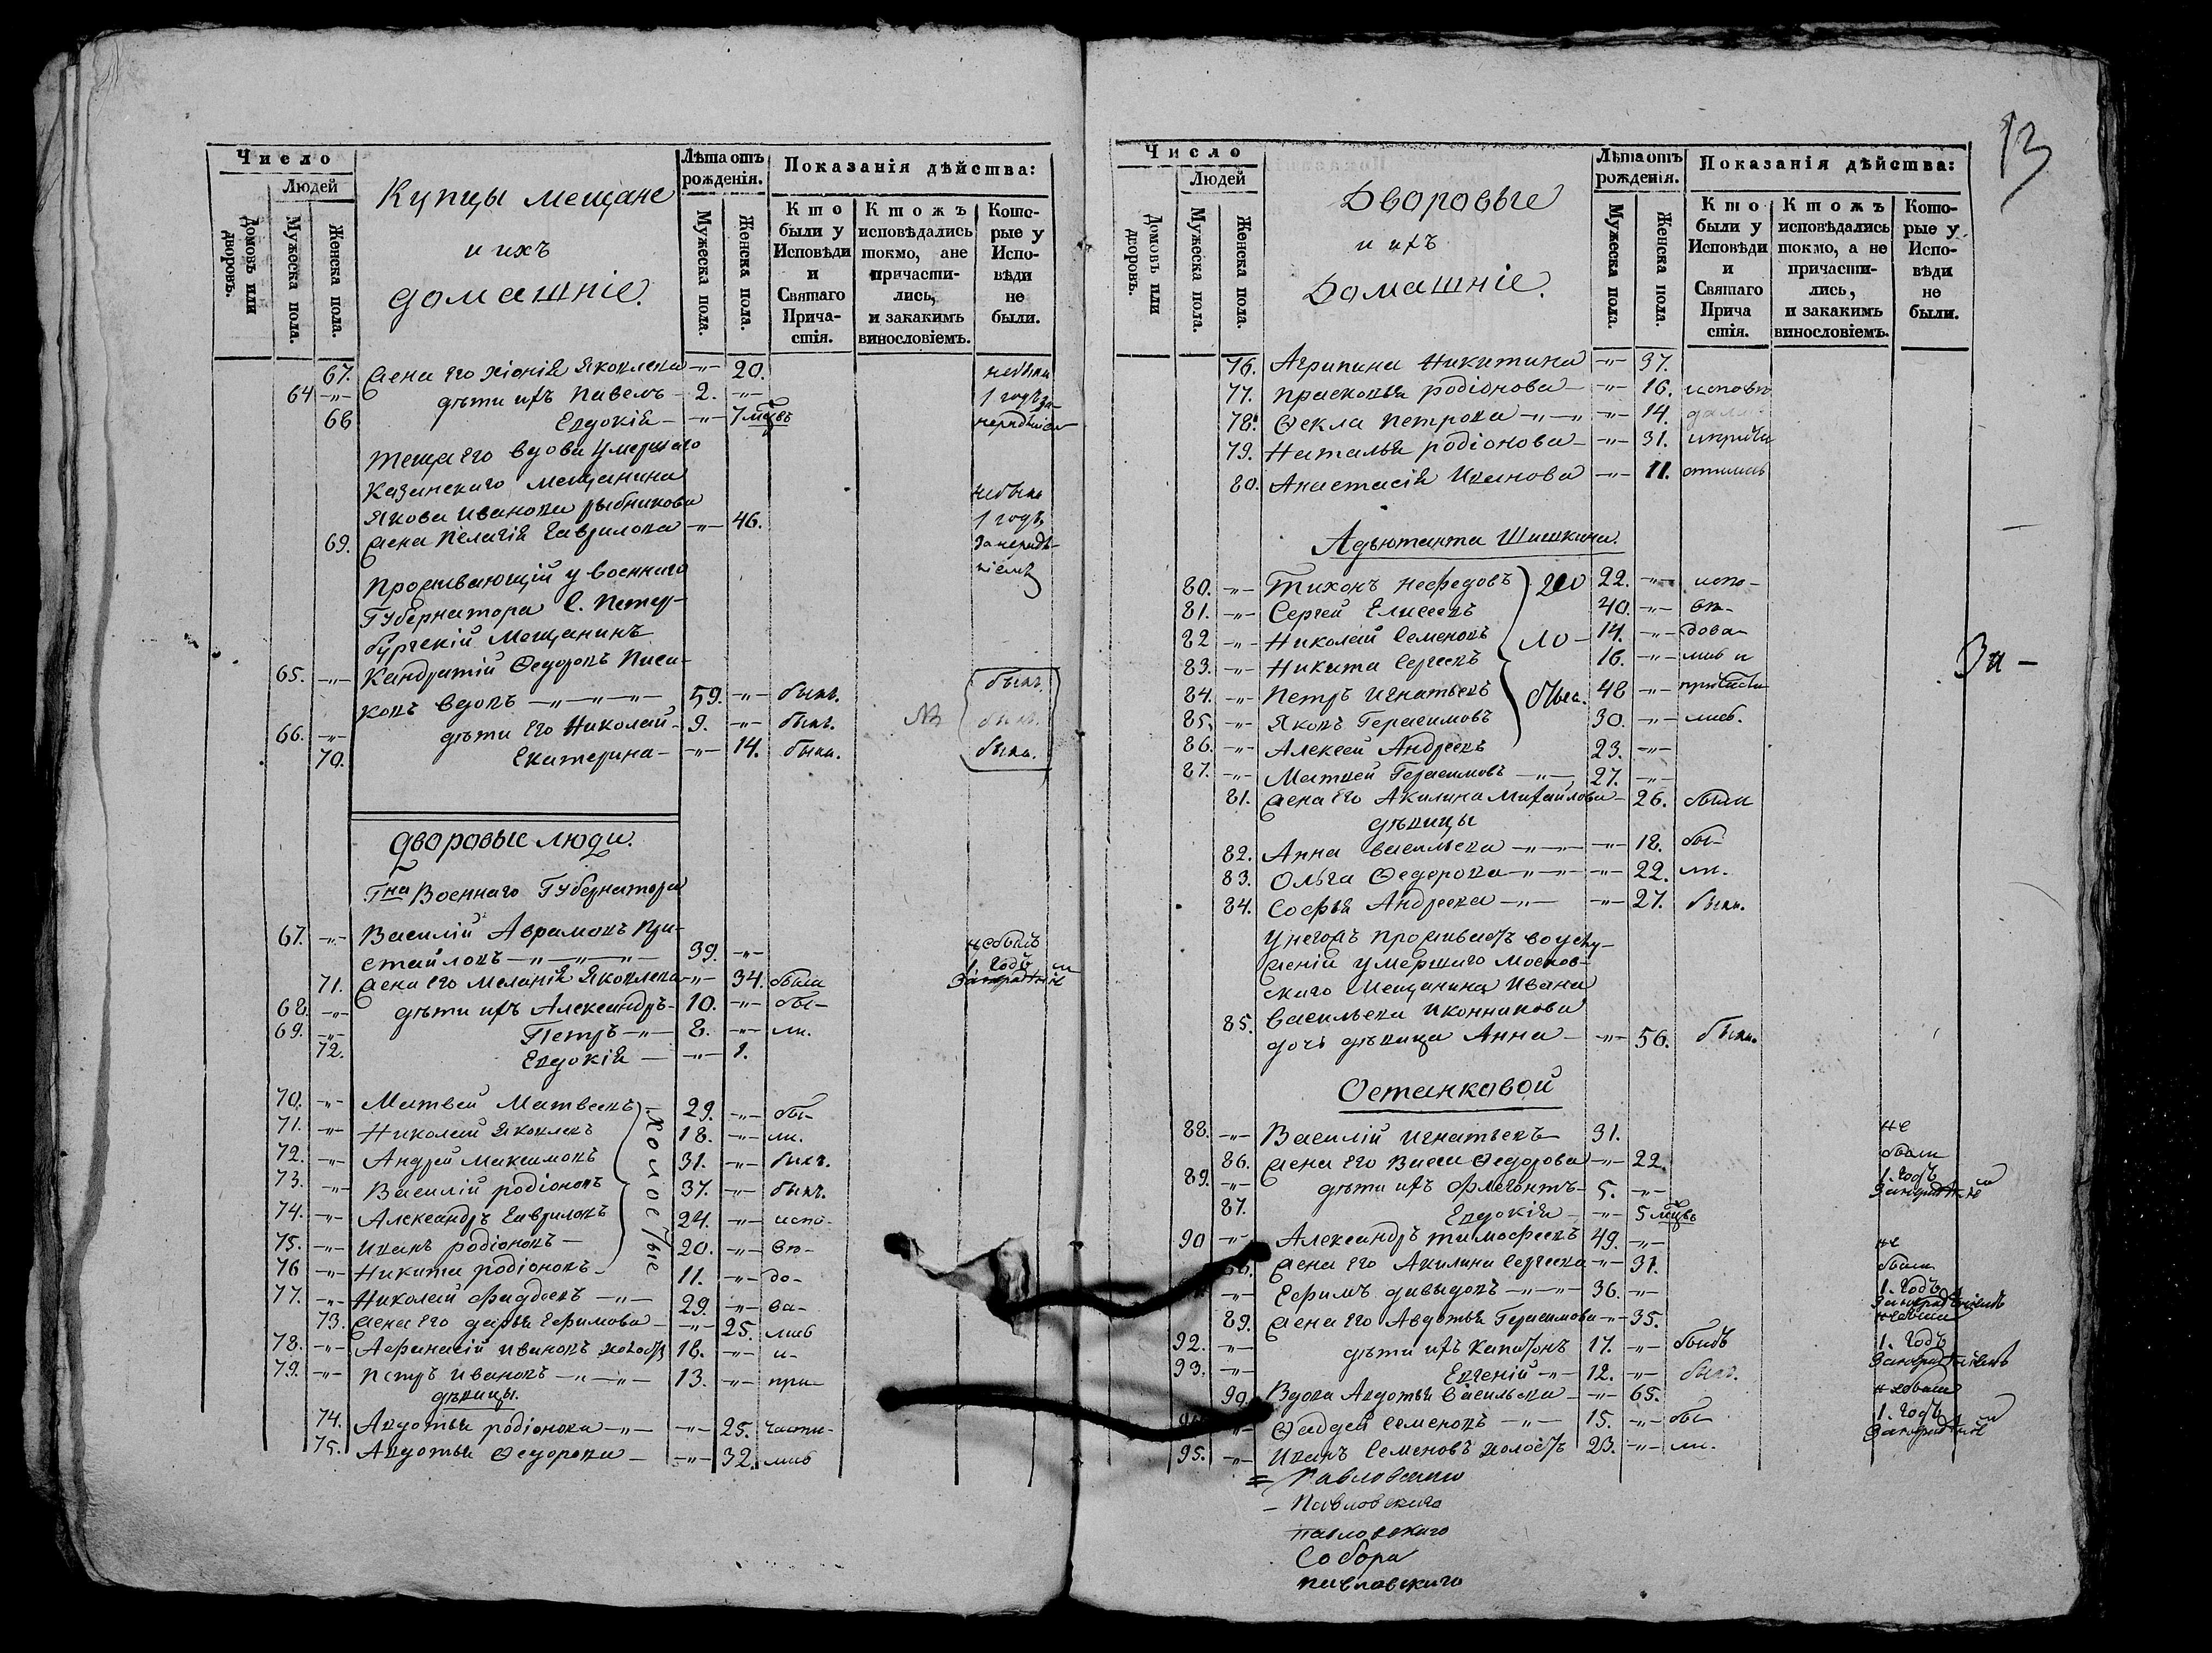 Число
Людей
Домовъ или дворовъ.
Мужеска пола.
Женска пола.
Купцы мещане
и ихъ
домашніе.
Лѣта отъ рожденія.
Мужеска пола.
Женска пола.
Показанія дѣйства:
Кто были у Исповѣди и Святаго Прича-стія.
Ктожъ исповѣдались токмо, ане причасти-лись, и закакимъ винословіемъ.
Кото-рые у Испо-вѣди не были.
67. жена его Хіонія Яковлева -"- 20. небыли
64 -"- дѣти ихъ Павелъ - 2. -"- 1 годъ за
68 Евдокія - -"- 7 мцвъ нерадѣніем
теща его вдова умершаго
Казанскаго мещанина
Якова Иванова рыбникова небыла
69. жена Пелагія Гаврилова -"- 46. 1 годъ
за нерадѣ-
ніемъ
Проживающій у Военнаго
Губернатора С. Петер-
бургскій Мещанинъ
65. -"- Кандратій Ѳедоровъ Писа-
ковъ вдовъ -"-"-"- 59. -"- былъ. былъ.
66. -"- дѣти его Николай - 9. -"- былъ. NB былъ.
70. Екатерина - -"- 14. была. была.
Дворовые люди.
Гна Военнаго Губернатора
67. -"- Василій Аврамовъ При-
стайловъ -"-"-"- 39. -"- небылъ
1. годъ
71. жена его Меланія Яковлева -"- 34. была
68. -"- дѣти ихъ Александръ - 10. -"- бы-
69. -"- Петръ -"- 8. -"- ли.
72. Евдокія - -"- 1.
70. -"- Матвей Матвеевъ 29. -"- бы-
71. -"- Николай Яковлевъ 18. -"- ли.
72. -"- Андрей Максимовъ 31. -"- былъ.
73. -"- Василій родіоновъ 37. -"- былъ.
74. -"- Александръ Гавриловъ 24. -"- испо-
75. -"- Иванъ родіоновъ - 20. -"- вѣ-
76 -"- Никита родіоновъ - 11. -"- до-
холостые
77. -"- Николай Фаддеевъ -"- 29. -"- ва-
73. жена его дарья Ефимова - -"- 25. лись
78. -"- Афанасій Ивановъ холостъ 18. -"- и-
79. -"- Петръ Ивановъ -"-"- 13. -"- при-
дѣвицы.
74. Авдотья родіонова -"- -"- 25. части-
75. Авдотья Ѳедорова - -"- 32. лись
13
Число
Людей
Домовъ или дворовъ.
Мужеска пола.
Женска пола.
Дворовые
и ихъ
Домашніе.
Лѣта отъ рожденія.
Мужеска пола.
Женска пола.
Показанія дѣйства:
Кто были у Исповѣди и Святаго Прича стія.
Ктожъ исповѣдались токмо, а не причасти-лись, и закакимъ винословіемъ.
Кото-рые у Испо-вѣди не были.
76. Агрипина Никитина -"- 37.
77. прасковья родіонова - -"- 16. исповѣ
78. Ѳекла Петрова -"-"- -"- 14.
79. Наталья родіонова - -"- 31. и прича
80. Анастасія Иванова -"- 11. стились
Адъютанта Шишкина.
80. -"- Тихонъ Нефедовъ 22. -"- испо-
81. -"- Сергей Елисеевъ 40. -"- вѣ-
82 -"- Николай Семеновъ 14. -"- дова-
83. -"- Никита Сергеевъ 16. -"- лись и
За-
84. -"- Петръ Игнатьевъ 48 -"- причасти
85. -"- Яковъ Герасимовъ 30. -"- лись.
86. -"- Алексей Андреевъ 23. -"-
хо
ло-
стые.
87. -"- Матвей Герасимовъ -"- 27. -"-
81. жена его Акилина Михайлова - 26. была
дѣвицы
82. Анна Васильева -"-"- -"- 18. бы-
83. Ольга Ѳедорова -"-"- -"- 22. ли.
84. Софья Андреева -"- -"- 27. была.
У негожъ проживаетъ во услу-
женіи умершаго Москов-
скаго Мещанина Ивана
85. Васильева Иконникова
дочь дѣвица Анна - -"- 56. была.
Останкавой
88. -"- Василій Игнатьевъ - 31. не
86. жена его Васса Ѳедорова -"- 22. были
89. -"- дѣти ихъ Флегонтъ - 5. -"- 1. годъ
87. Евдокія - -"- 5 мцвъ
90 -"- Александръ тимофеевъ 49. -"- не
88. жена его Акилина Сергеева -"- 31. были
-"- Ефимъ давыдовъ -"-"- 36. -"- 1. годъ
89. жена его Авдотья Герасимова -"- 35. небыла
92. -"- дѣти ихъ Капитонъ 17. -"- былъ 1. годъ
93. -"- Евгеній -"- 12. -"- былъ.
90. Вдова Авдотья Васильева - -"- 65. небыла
-"- Ѳаддей Семеновъ -"- 15. -"- бы- 1. годъ
95. -"- Иванъ Семеновъ холостъ 23. -"- ли.
= Павловскаго
- Павловскаго
павловскаго
Собора
павловскаго